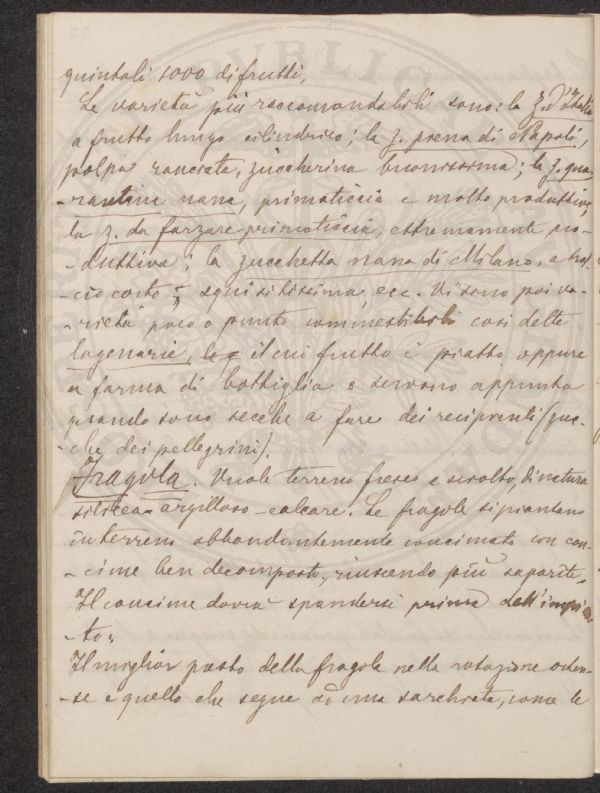 quintali 1000 di frutti,
Le varietà più raccomandabili sono: la z. d'Italia
a frutto lungo cilindrico; la z. piena di Napoli,
polpa ranciata, zuccherina buonissima; la z. qua-
-rantina nana, primaticcia e molto produttiva,
la z. da forzare primaticcia, estremamente pro-
-duttiva; la zucchetta nana di Milano, a
-cio corto squisitissima, ecc. Vi sono poi va-
-rietà poco o punto commestibili così dette
lagenarie, il cui frutto è piatto oppure
a forma di bottiglia e servono appunto
quando sono secche a fare dei recipienti (zuc-
-che dei pellegrini).
Fragola. Vuole terreno fresco e sciolto, di natura
siliceo-argilloso-calcare. Le fragole si piantano
in terreno abbondantemente concimato con con-
-cime ben decomposto, riuscendo più saporite,
Il concime dovrà spandersi prima dell'impian-
-to.
Il miglior posto della fragola nella rotazione orten-
-se è quello che segue ad una sarchiata, come le